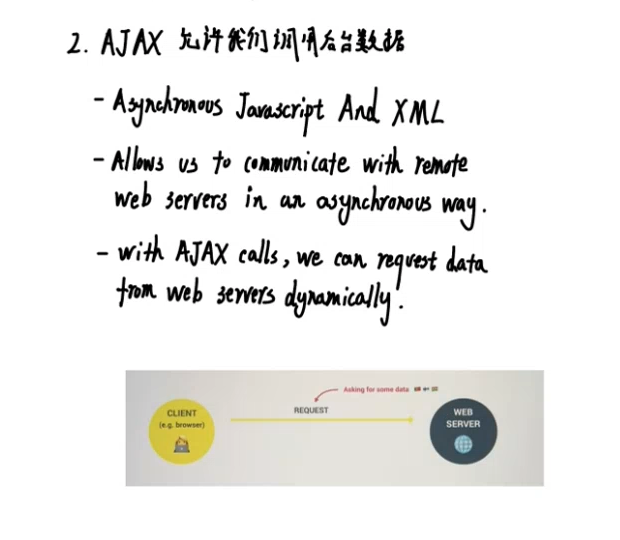 2. AJAX 允许我们调用后台数据
- Asynchronous Javascript And XML
- Allows us to communicate with remote
web servers in an asynchronous way.
- with AJAX calls, we can request data
from web servers dynamically.
Asking for some data
CLIENT
(e.g. browser)
REQUEST
WEB
SERVER